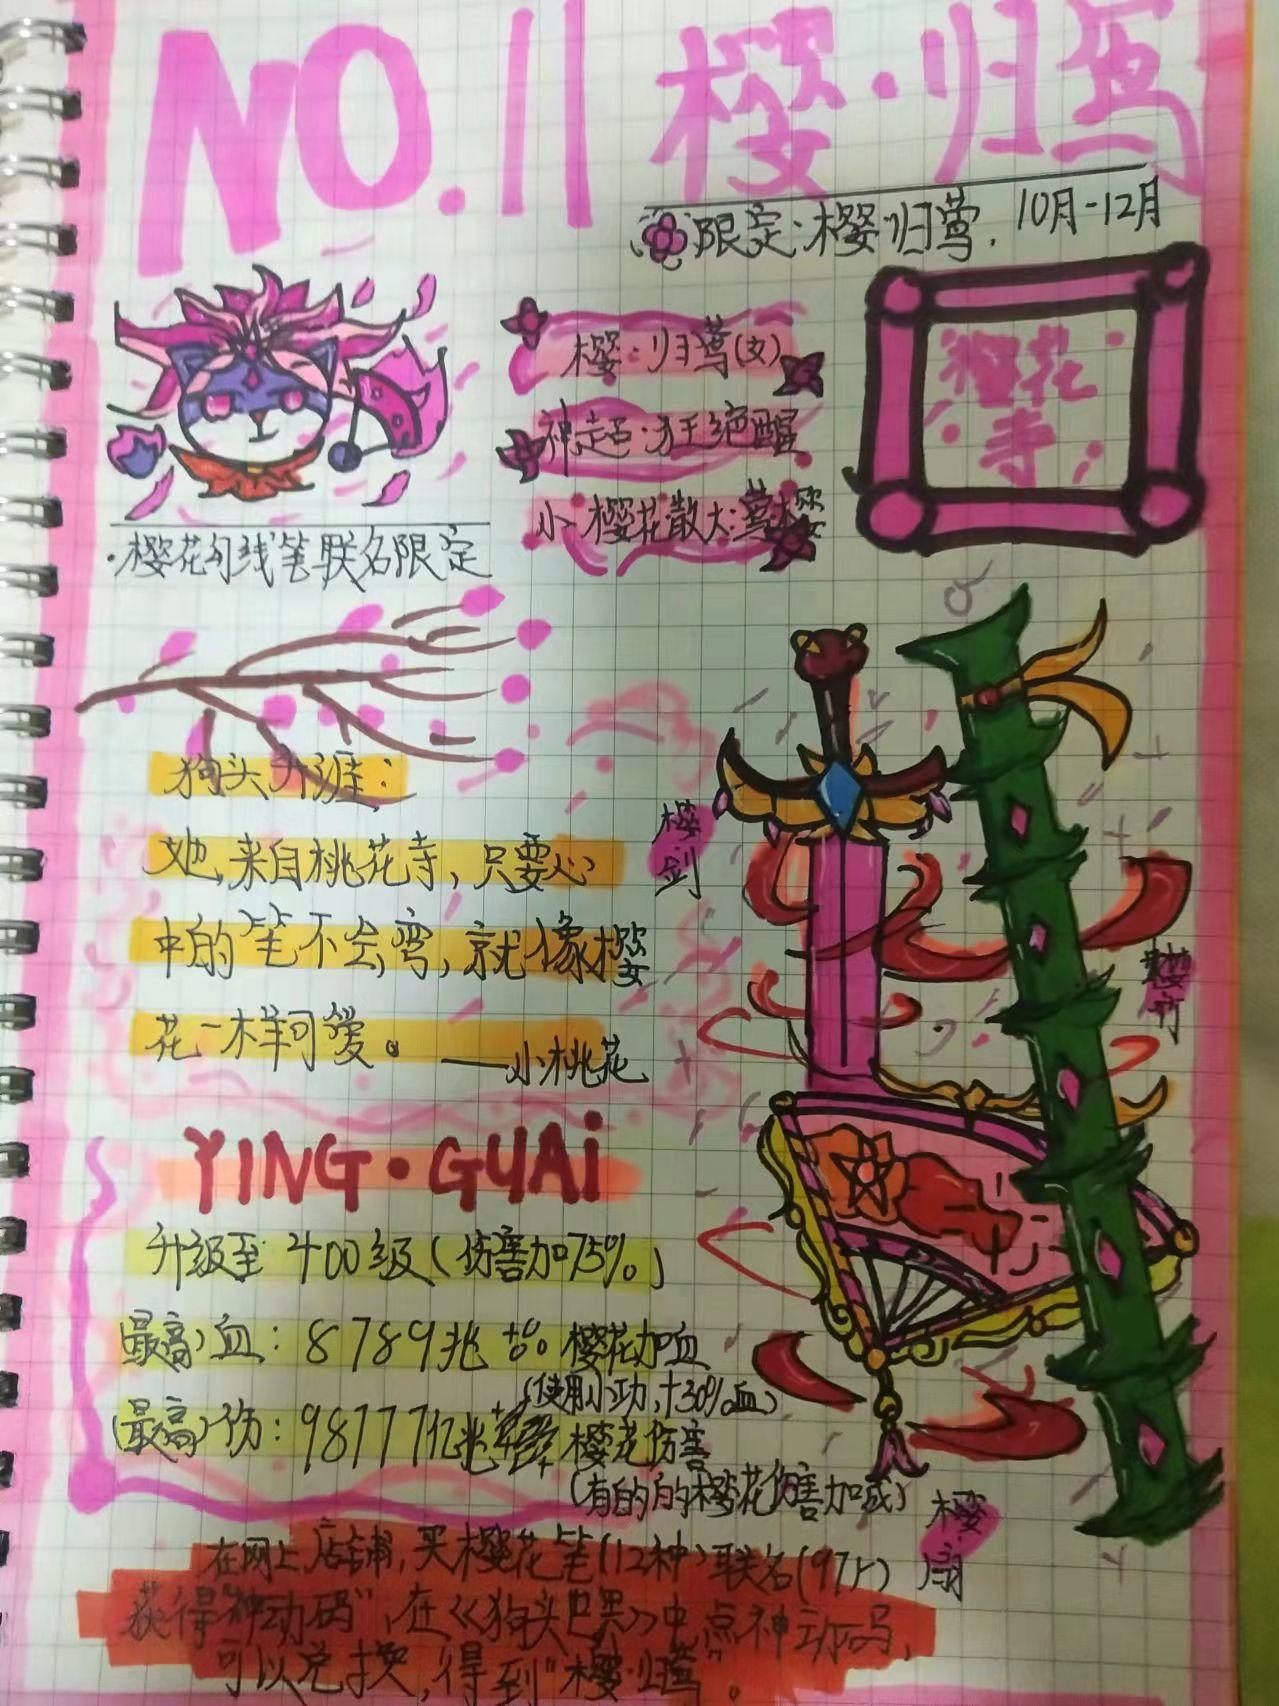 NO.11 樱·归莺
限定:樱·归莺. 10月-12月
樱·归莺(女)
神起·狂绝醒
小:樱花散大:莺樱
樱花
寺
·樱花勾线笔联名限定
狗头升涯:
她,来自桃花寺,只要心
中的笔不会弯,就像樱
花一样可爱。——小桃花
樱剑
樱竹
YING·GUAi
升级至400级(伤害加75%)
(最高)血:8789兆 樱花加血
(使用小功,+30%血)
(最高)伤:98777亿兆 樱花伤害
(有的的樱花伤害加成)
樱扇
在网上店铺,买樱花笔(12种)联名(97r)
获得"神动码",在《狗头巴黑》中点神动码,
可以兑换,得到"樱·归莺"。